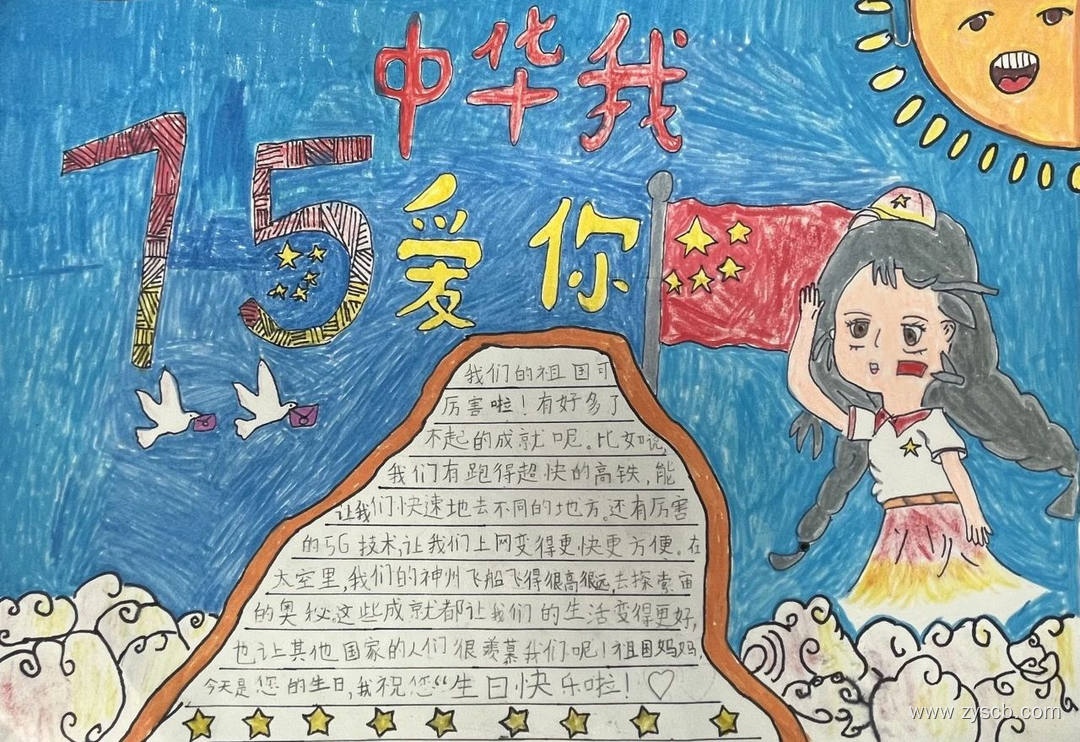 中华我
75
爱你
我们的祖国可
厉害啦！有好多了
不起的成就呢。比如说，
我们有跑得超快的高铁，能
让我们快速地去不同的地方。还有厉害
的5G技术，让我们上网变得更快更方便。在
太空里，我们的神州飞船飞得很高很远，去探索宙
的奥秘。这些成就都让我们的生活变得更好，
也让其他国家的人们很羡慕我们呢！祖国妈妈，
今天是您的生日，我祝您“生日快乐啦！♡
www.zyscb.com